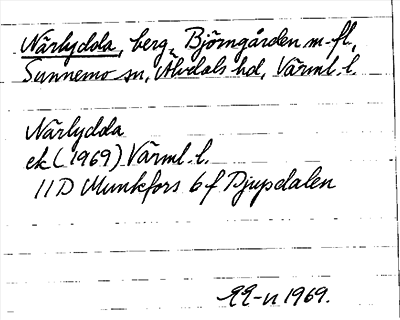 Närlydda, berg, Björngården m.fl.,
Sunnemo sn, Älvdals hd, Värml. l.
Närlydda
ek (1969) Värml. l.
11D Munkfors 6f Djupdalen
1969.